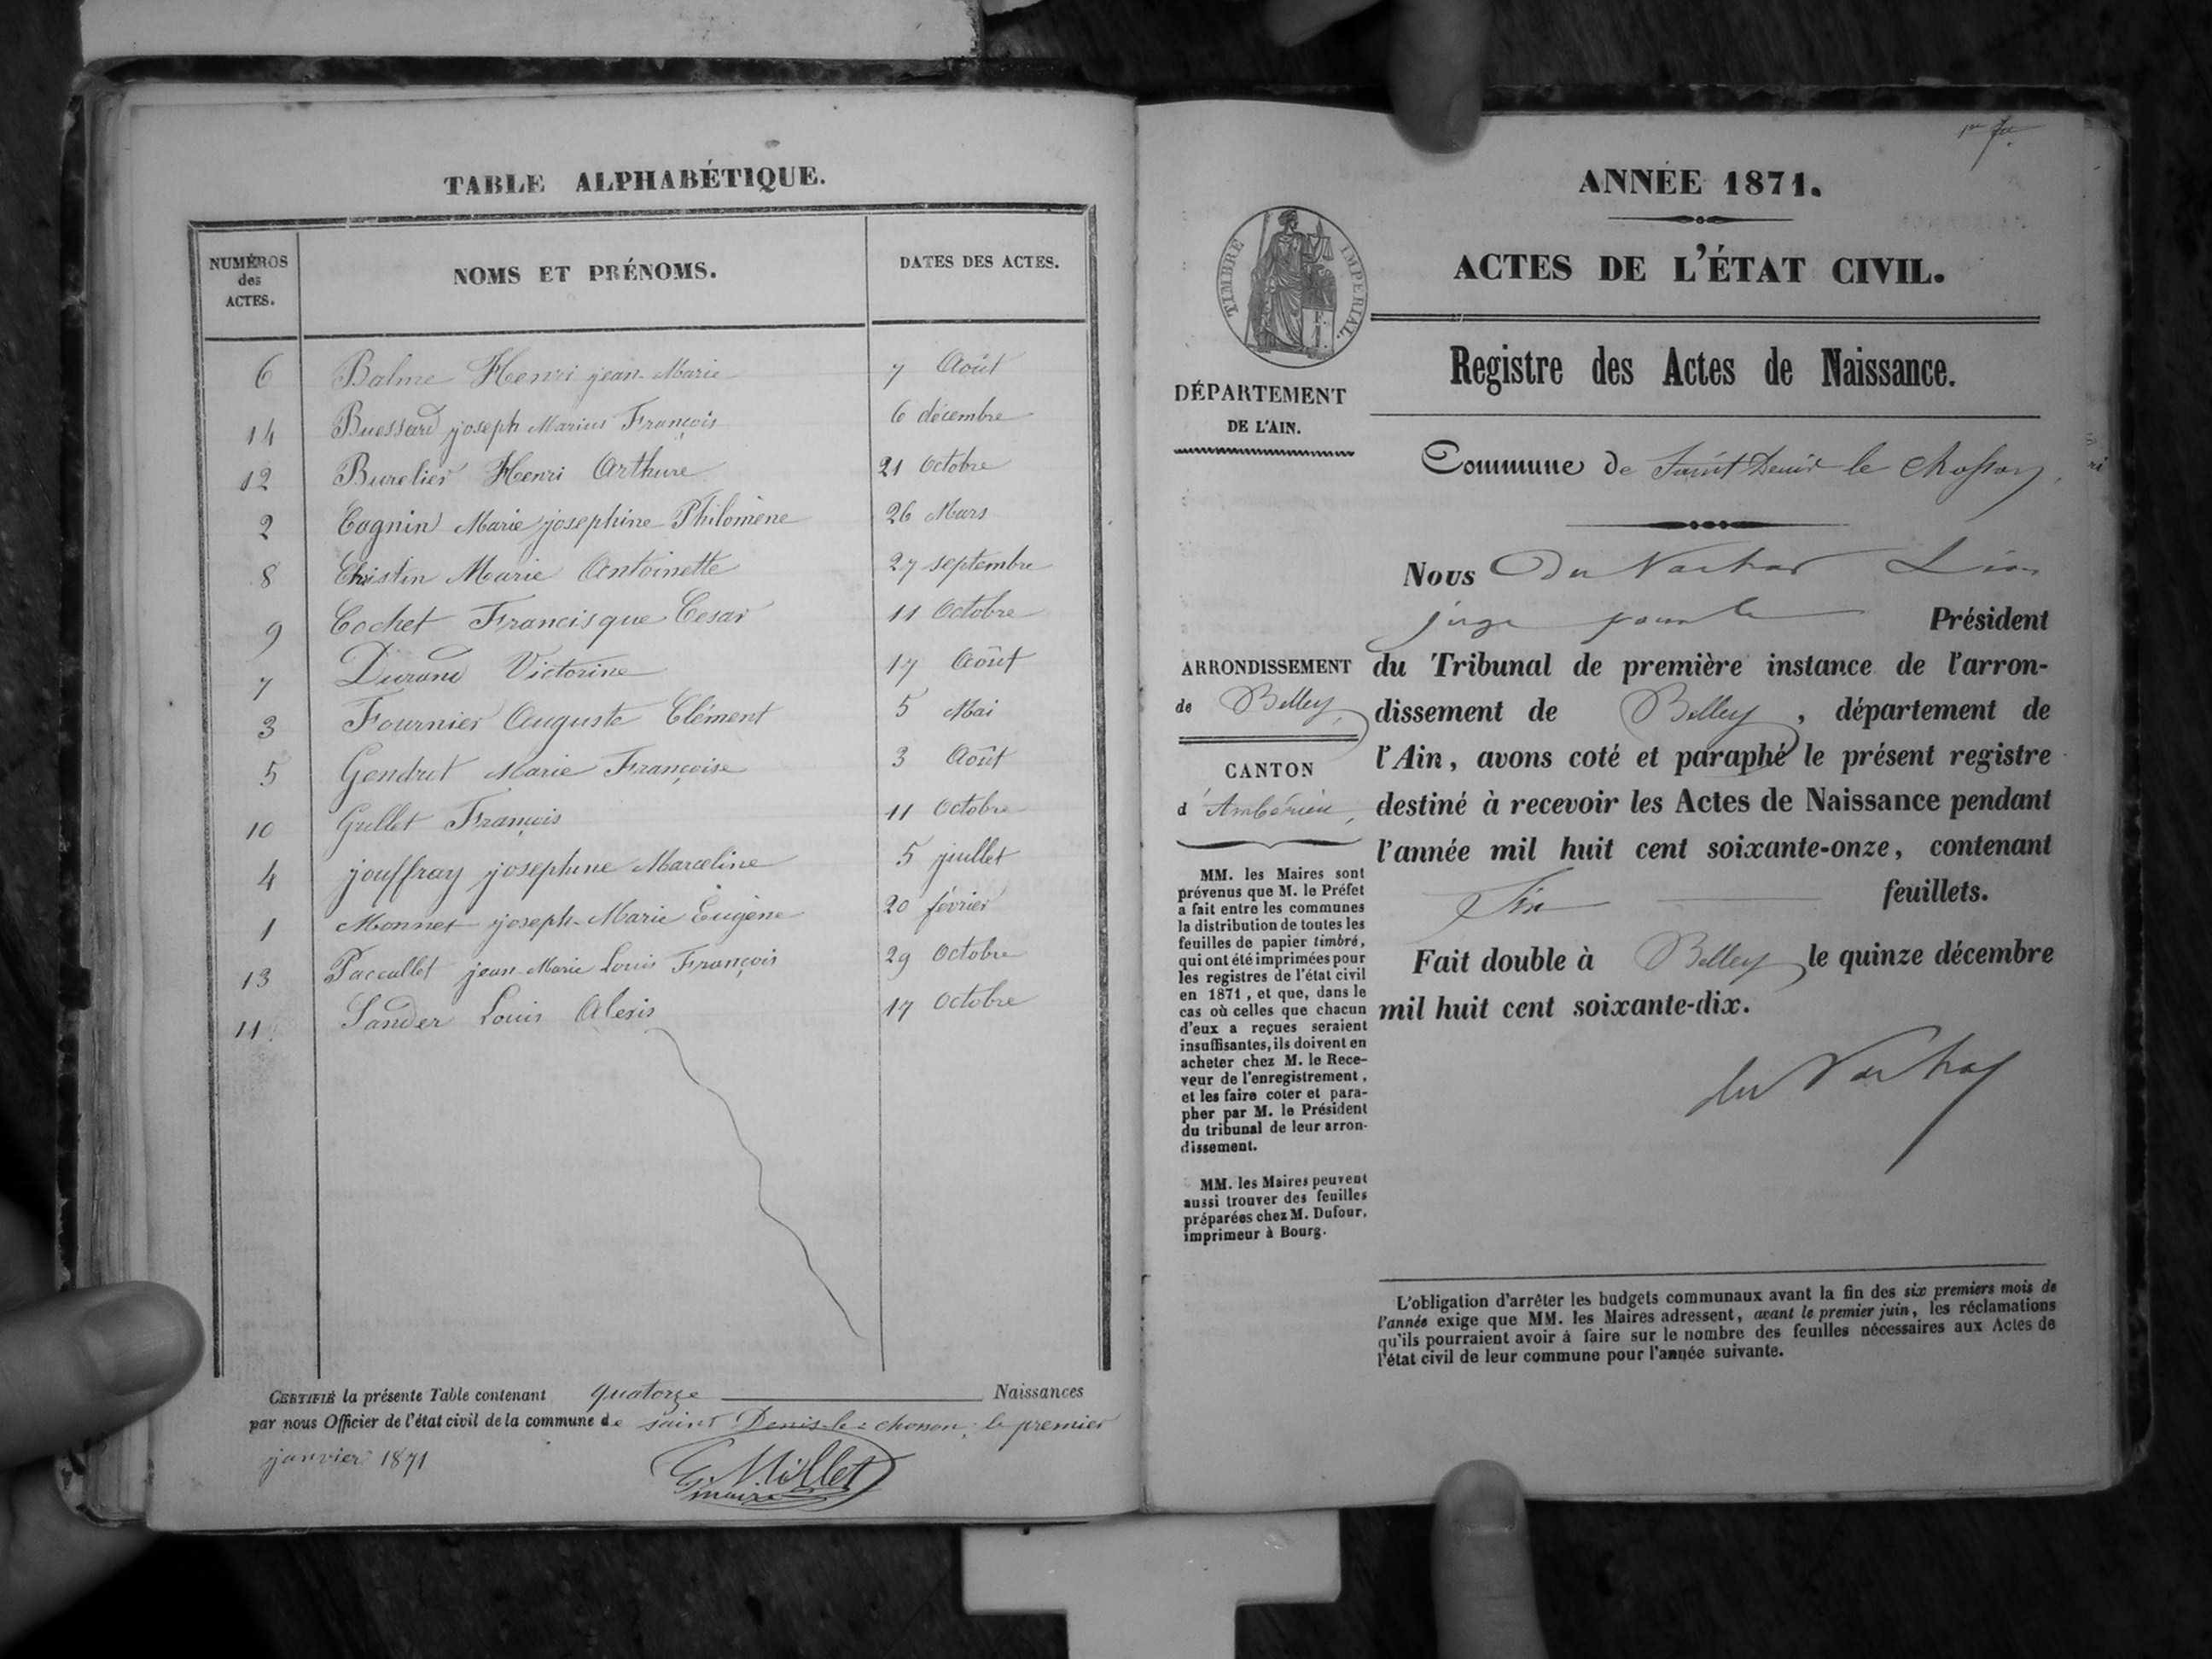 TABLE ALPHABÉTIQUE.
NUMÉROS des ACTES.
NOMS ET PRÉNOMS.
DATES DES ACTES.
6 Balme Henri jean-Marie 7 Août
14 Buessard joseph Marius François 6 décembre
12 Burelier Henri Arthure 21 Octobre
2 Cognin Marie josephine Philomène 26 Mars
8 Christin Marie Antoinette 27 septembre
9 Cochet Francisque Cesar 11 Octobre
7 Durand Victorine 17 Août
3 Fournier Auguste Clément 5 Mai
5 Gendrut Marie Françoise 3 Août
10 Grillet François 11 Octobre
4 jouffray josephine Marceline 5 juillet
1 Monnet joseph-Marie Eugène 20 février
13 Paccallet jean-Marie Louis François 29 Octobre
11 Sander Louis Alexis 17 Octobre
CERTIFIÉ la présente Table contenant quatorze Naissances
par nous Officier de l'état civil de la commune de saint Denis-le-chosson, le premier
janvier 1871
G. Millet
maire
ANNÉE 1871.
ACTES DE L'ÉTAT CIVIL.
TIMBRE IMPERIAL.
Registre des Actes de Naissance.
DÉPARTEMENT
DE L'AIN.
Commune de Saint Denis le Chosson,
Nous
juge pour le Président
ARRONDISSEMENT
de Belley,
CANTON
d'Ambérieu,
du Tribunal de première instance de l'arron-
dissement de Belley, département de
l'Ain, avons coté et paraphé le présent registre
destiné à recevoir les Actes de Naissance pendant
l'année mil huit cent soixante-onze, contenant
Six feuillets.
Fait double à Belley, le quinze décembre
mil huit cent soixante-dix.
MM. les Maires sont
prévenus que M. le Préfet
a fait entre les communes
la distribution de toutes les
feuilles de papier timbré,
qui ont été imprimées pour
les registres de l'état civil
en 1871, et que, dans le
cas où celles que chacun
d'eux a reçues seraient
insuffisantes, ils doivent en
acheter chez M. le Rece-
veur de l'enregistrement,
et les faire coter et para-
pher par M. le Président
du tribunal de leur arron-
dissement.
MM. les Maires peuvent
aussi trouver des feuilles
préparées chez M. Dufour,
imprimeur à Bourg.
L'obligation d'arrêter les budgets communaux avant la fin des six premiers mois de
l'année exige que MM. les Maires adressent, avant le premier juin, les réclamations
qu'ils pourraient avoir à faire sur le nombre des feuilles nécessaires aux Actes de
l'état civil de leur commune pour l'année suivante.